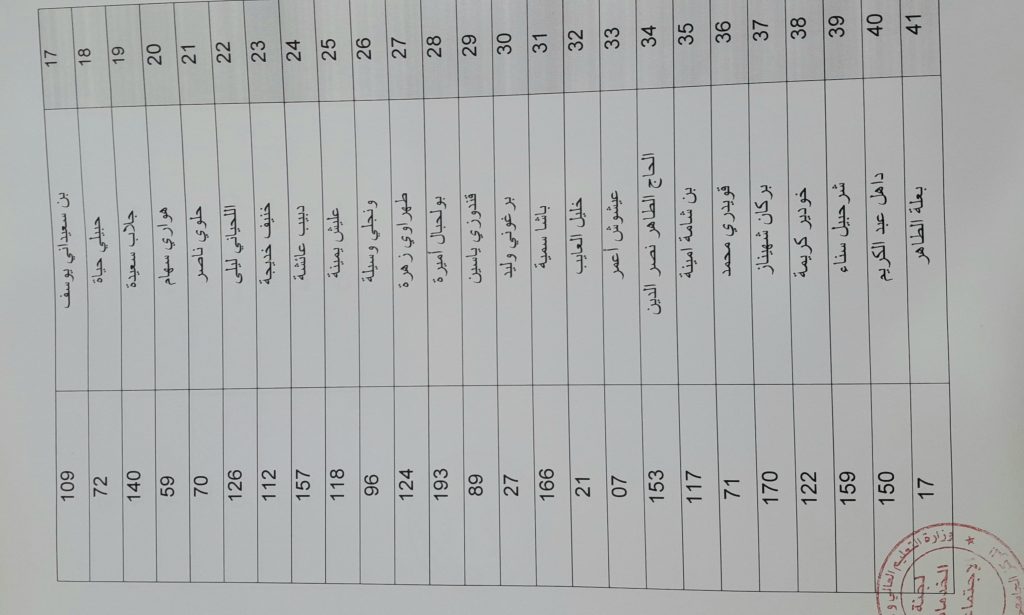 17 بن سعيداني يوسف 109
18 حبيلي حياة 72
19 جلاب سعيدة 140
20 هواري سهام 59
21 حلوي ناصر 70
22 اللحياني ليلى 126
23 خنيف خديجة 112
24 دبيب عائشة 157
25 عليش يمينة 118
26 ونجلي وسيلة 96
27 طهراوي زهرة 124
28 بولحبال أميرة 193
29 قندوزي ياسين 89
30 برغوني وليد 27
31 باشا سمية 166
32 خليل العايب 21
33 عيشوش أعمر 07
34 الحاج الطاهر نصر الدين 153
35 بن شامة أمينة 117
36 قويدري محمد 71
37 بركان شهيناز 170
38 خودير كريمة 122
39 شرحبيل سناء 159
40 داهل عبد الكريم 150
41 بعلة الطاهر 17
وزارة التعليم العالي و
لجنة
الخدمات
الإجتما